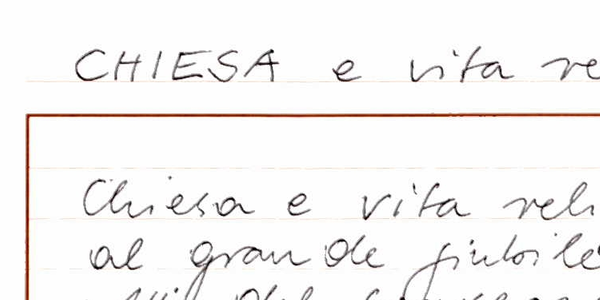 CHIESA e vita re
Chiesa e vita reli
al grande giubile
Atti del